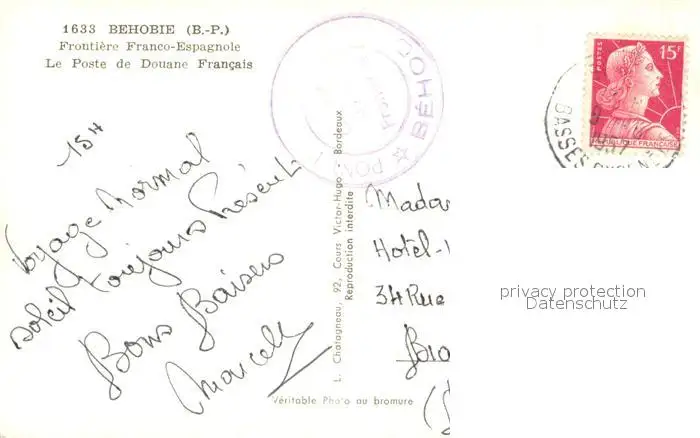 1633 BEHOBIE (B.-P.)
Frontière Franco-Espagnole
Le Poste de Douane Français
15H
Voyage Normal
soleil toujours Présent
Bons Baisers
Marcell
L. Chatagneau, 92, Cours Victor-Hugo, Bordeaux
Reproduction interdite
Véritable Photo au bromure
BÉHO
PONT
POSTES
15F
REPUBLIQUE FRANCAISE
BASSES
Mada
Hotel-
34 Rue
privacy protection
Datenschutz